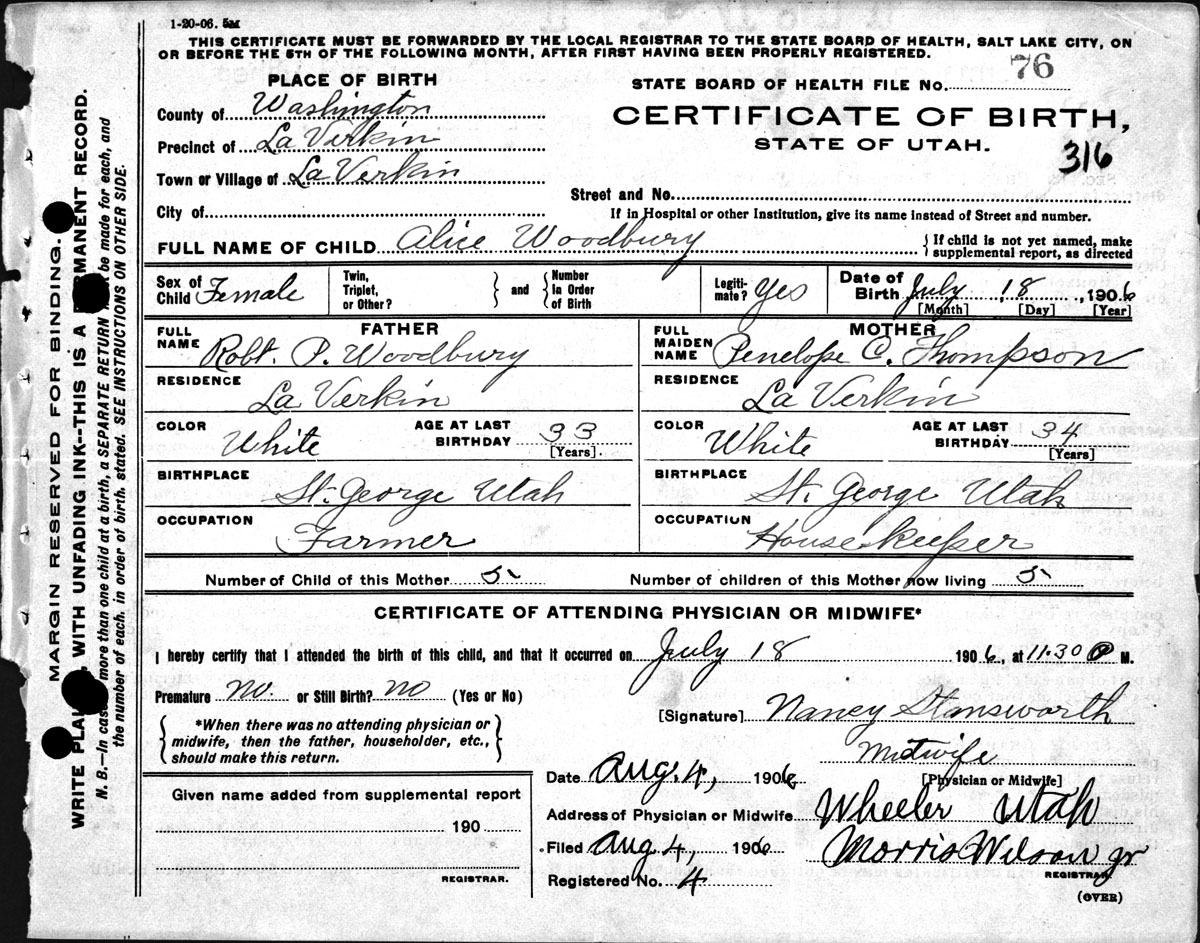 1-20-06. 5M
THIS CERTIFICATE MUST BE FORWARDED BY THE LOCAL REGISTRAR TO THE STATE BOARD OF HEALTH, SALT LAKE CITY, ON
OR BEFORE THE 5TH OF THE FOLLOWING MONTH, AFTER FIRST HAVING BEEN PROPERLY REGISTERED.
PLACE OF BIRTH
STATE BOARD OF HEALTH FILE No. 76
County of Washington
CERTIFICATE OF BIRTH,
Precinct of La Verkin
STATE OF UTAH.
316
Town or Village of La Verkin
Street and No.
City of
If in Hospital or other Institution, give its name instead of Street and number.
FULL NAME OF CHILD Alice Woodbury
{ If child is not yet named, make
supplemental report, as directed
Sex of Child Female
Twin, Triplet, or Other? } and { Number In Order of Birth
Legitimate? Yes
Date of Birth July 18, 1906
[Month] [Day] [Year]
FATHER
FULL NAME Robt. P. Woodbury
RESIDENCE La Verkin
COLOR White
AGE AT LAST BIRTHDAY 33 [Years].
BIRTHPLACE St. George Utah
OCCUPATION Farmer
MOTHER
FULL MAIDEN NAME Penelope C. Thompson
RESIDENCE La Verkin
COLOR White
AGE AT LAST BIRTHDAY 34 [Years]
BIRTHPLACE St. George Utah
OCCUPATION House keeper
Number of Child of this Mother 5
Number of children of this Mother now living 5
CERTIFICATE OF ATTENDING PHYSICIAN OR MIDWIFE*
I hereby certify that I attended the birth of this child, and that it occurred on July 18 1906, at 11.30 P M.
Premature no. or Still Birth? no (Yes or No)
{ *When there was no attending physician or
midwife, then the father, householder, etc.,
should make this return. }
[Signature] Nancy Stansworth
Midwife
[Physician or Midwife]
Date Aug. 4, 1906
Address of Physician or Midwife Wheeler Utah
Filed Aug 4, 1906
Morris Wilson jr
REGISTRAR.
Registered No. 4
(OVER)
Given name added from supplemental report
190
REGISTRAR.
MARGIN RESERVED FOR BINDING.
WRITE WITH UNFADING INK--THIS IS A RECORD.
N. B.—In more than one child at a birth, a SEPARATE RETURN be made for each, and
the number of each, in order of birth, stated. SEE INSTRUCTIONS ON OTHER SIDE.